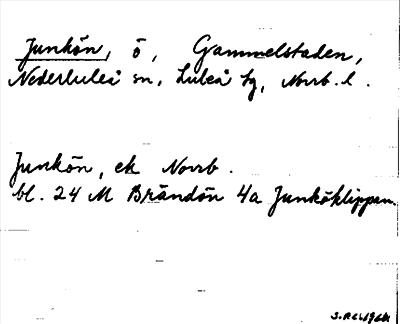 Junkön, ö, Gammelstaden,
Nederluleå sn, Luleå tg, Norrb. l.
Junkön, ek Norrb.
bl. 24 M Brändön 4a Junköklippan